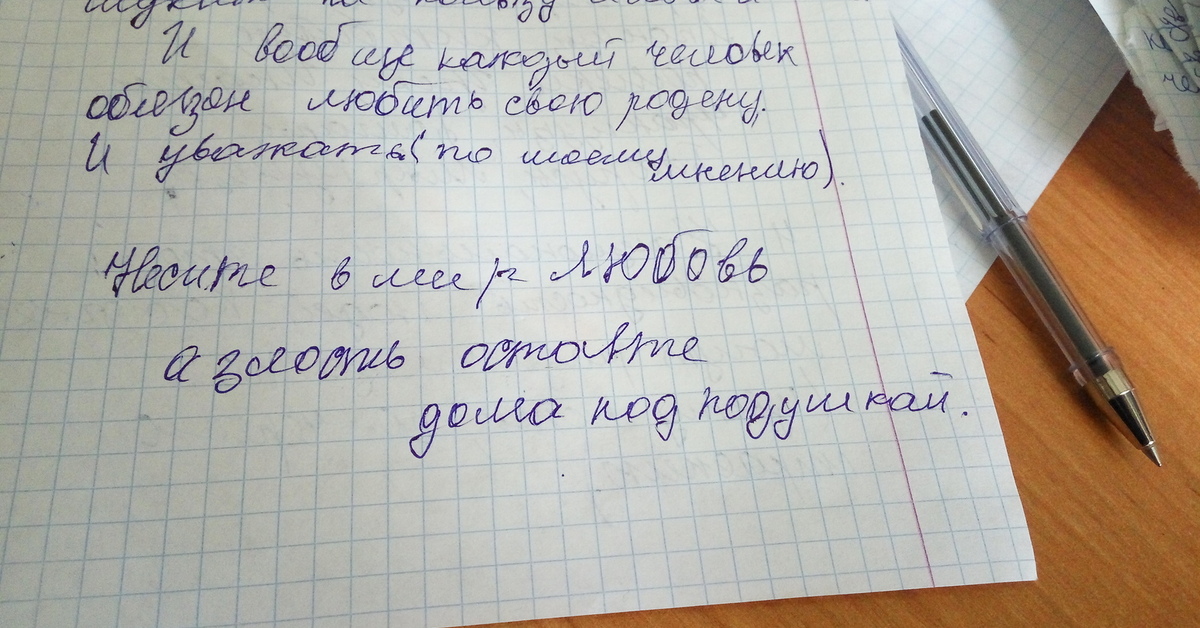 на пользу
И вообще каждый человек
облезон любить свою родену.
И уважать (по моему
мнению).
Несите в мир ЛЮБОВЬ
а злость оставте
дома под подушкай.